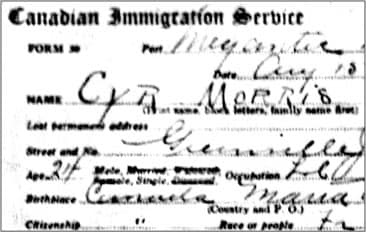 Canadian Immigration Service
FORM 30 Port Megantic
Date Aug 13
NAME CYR MORRIS
(Print name, block letters, family name first)
Last permanent address
Street and No. Greenville
Age 24 Male, Married, Widowed, Female, Single, Divorced Occupation Lab
Birthplace Canada Maria
(Country and P. O.)
Citizenship " Race or people Fr